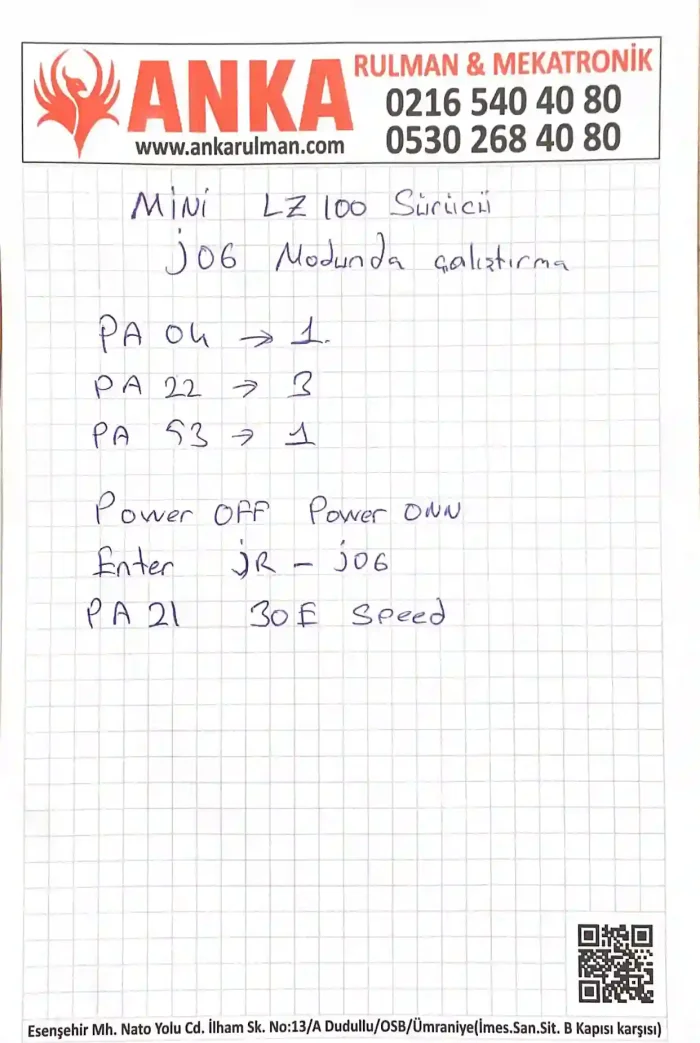 ANKA
RULMAN & MEKATRONİK
0216 540 40 80
www.ankarulman.com
0530 268 40 80
MiNi LZ 100 Sürücü
JOG Modunda çalıştırma
PA 04 → 1.
PA 22 → 3
PA 53 → 1
Power OFF Power ONN
Enter jR - jOG
PA 21 30E Speed
Esenşehir Mh. Nato Yolu Cd. İlham Sk. No:13/A Dudullu/OSB/Ümraniye(İmes.San.Sit. B Kapısı karşısı)